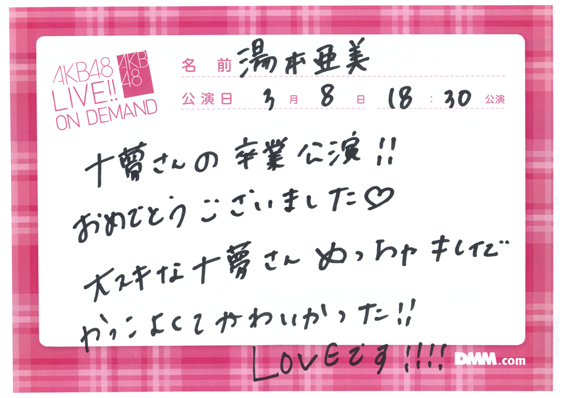 AKB48
LIVE!!
ON DEMAND
AKB
48
名前 湯本亜美
公演日 3月8日 18:30公演
十夢さんの卒業公演!!
おめでとうございました♡
大スキな十夢さんめっちゃキレイで
かっこよくてかわいかった!!
LOVEです!!!!
DMM.com